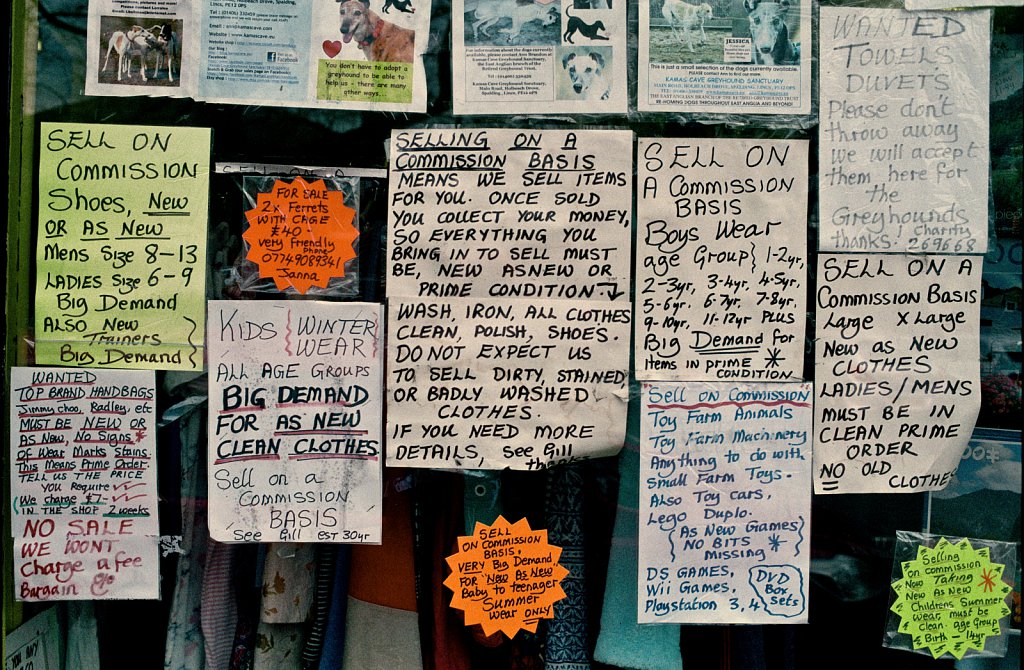 Main Road, Holbeach Drove, Spalding,
Lincs, PE12 0PS
Tel: (01406) 330459
Email: ann@kamascave.eu
Website: www.kamascave.eu
Facebook
You don't have to adopt a
greyhound to be able to
help us - there are many
other ways..
For information about the dogs currently
available, please contact
Kamas Cave Greyhound Sanctuary,
Main Road, Holbeach Drove,
Spalding, Lincs, PE12 0PS
JESSICA
This is just a small selection of the dogs currently available.
PLEASE contact Ann to find out more:
KAMAS CAVE GREYHOUND SANCTUARY
MAIN ROAD, HOLBEACH DROVE, SPALDING, LINCS, PE12 0PS
RE-HOMING DOGS THROUGHOUT EAST ANGLIA AND BEYOND!
WANTED
TOWELS
DUVETS
Please don't
throw away
We will accept
them here for
the
Greyhounds
thanks! Charity
269668
SELL ON
COMMISSION
Shoes, New
OR AS NEW
Mens Size 8-13
LADIES Size 6-9
Big Demand
ALSO New
Trainers
Big Demand
FOR SALE
2x Ferrets
WITH CAGE
£40
very friendly
Phone
07749089341
Janna
SELLING ON A
COMMISSION BASIS
MEANS WE SELL ITEMS
FOR YOU. ONCE SOLD
YOU COLLECT YOUR MONEY,
SO EVERYTHING YOU
BRING IN TO SELL MUST
BE, NEW ASNEW OR
PRIME CONDITION
WASH, IRON, ALL CLOTHES
CLEAN, POLISH, SHOES.
DO NOT EXPECT US
TO SELL DIRTY, STAINED,
OR BADLY WASHED
CLOTHES.
IF YOU NEED MORE
DETAILS, see Gill
thanks
SELL ON
A COMMISSION
BASIS
Boys Wear
age Group } 1-2yr,
2-3yr, 3-4yr, 4-5yr,
5-6yr, 6-7yr, 7-8yr,
9-10yr, 11-12yr PLUS
Big Demand for
items in prime *
CONDITION
SELL ON A
Commission Basis
Large X Large
New as New
CLOTHES
LADIES/MENS
MUST BE IN
CLEAN PRIME
ORDER
NO OLD
CLOTHES
WANTED
TOP BRAND HANDBAGS
Jimmy choo, Radley, etc
MUST BE NEW OR
AS New, No Signs *
OF Wear Marks Stains.
This Means Prime Order.
TELL US THE PRICE
YOU Require
We charge £7-
IN THE SHOP 2 weeks
NO SALE
WE WONT
Charge a fee
Bargain
KIDS WINTER
WEAR
ALL AGE GROUPS
BIG DEMAND
FOR AS NEW
CLEAN CLOTHES
Sell on a
COMMISSION
BASIS
See Gill EST 30yr
SELL
ON COMMISSION
BASIS,
VERY Big Demand
FOR New AS New
Baby to teenager
Summer
Wear ONLY
Sell on Commission
Toy Farm Animals
Toy Farm Machinery
Anything to do with
Small Farm Toys.
Also Toy cars,
Lego Duplo.
As New Games
NO BITS
missing *
DS GAMES,
Wii Games,
Playstation 3, 4
DVD
Box
sets
Selling
on commission
Now Taking *
New As New
Childrens Summer
wear, must be
Clean. age Group
Birth - 14yr